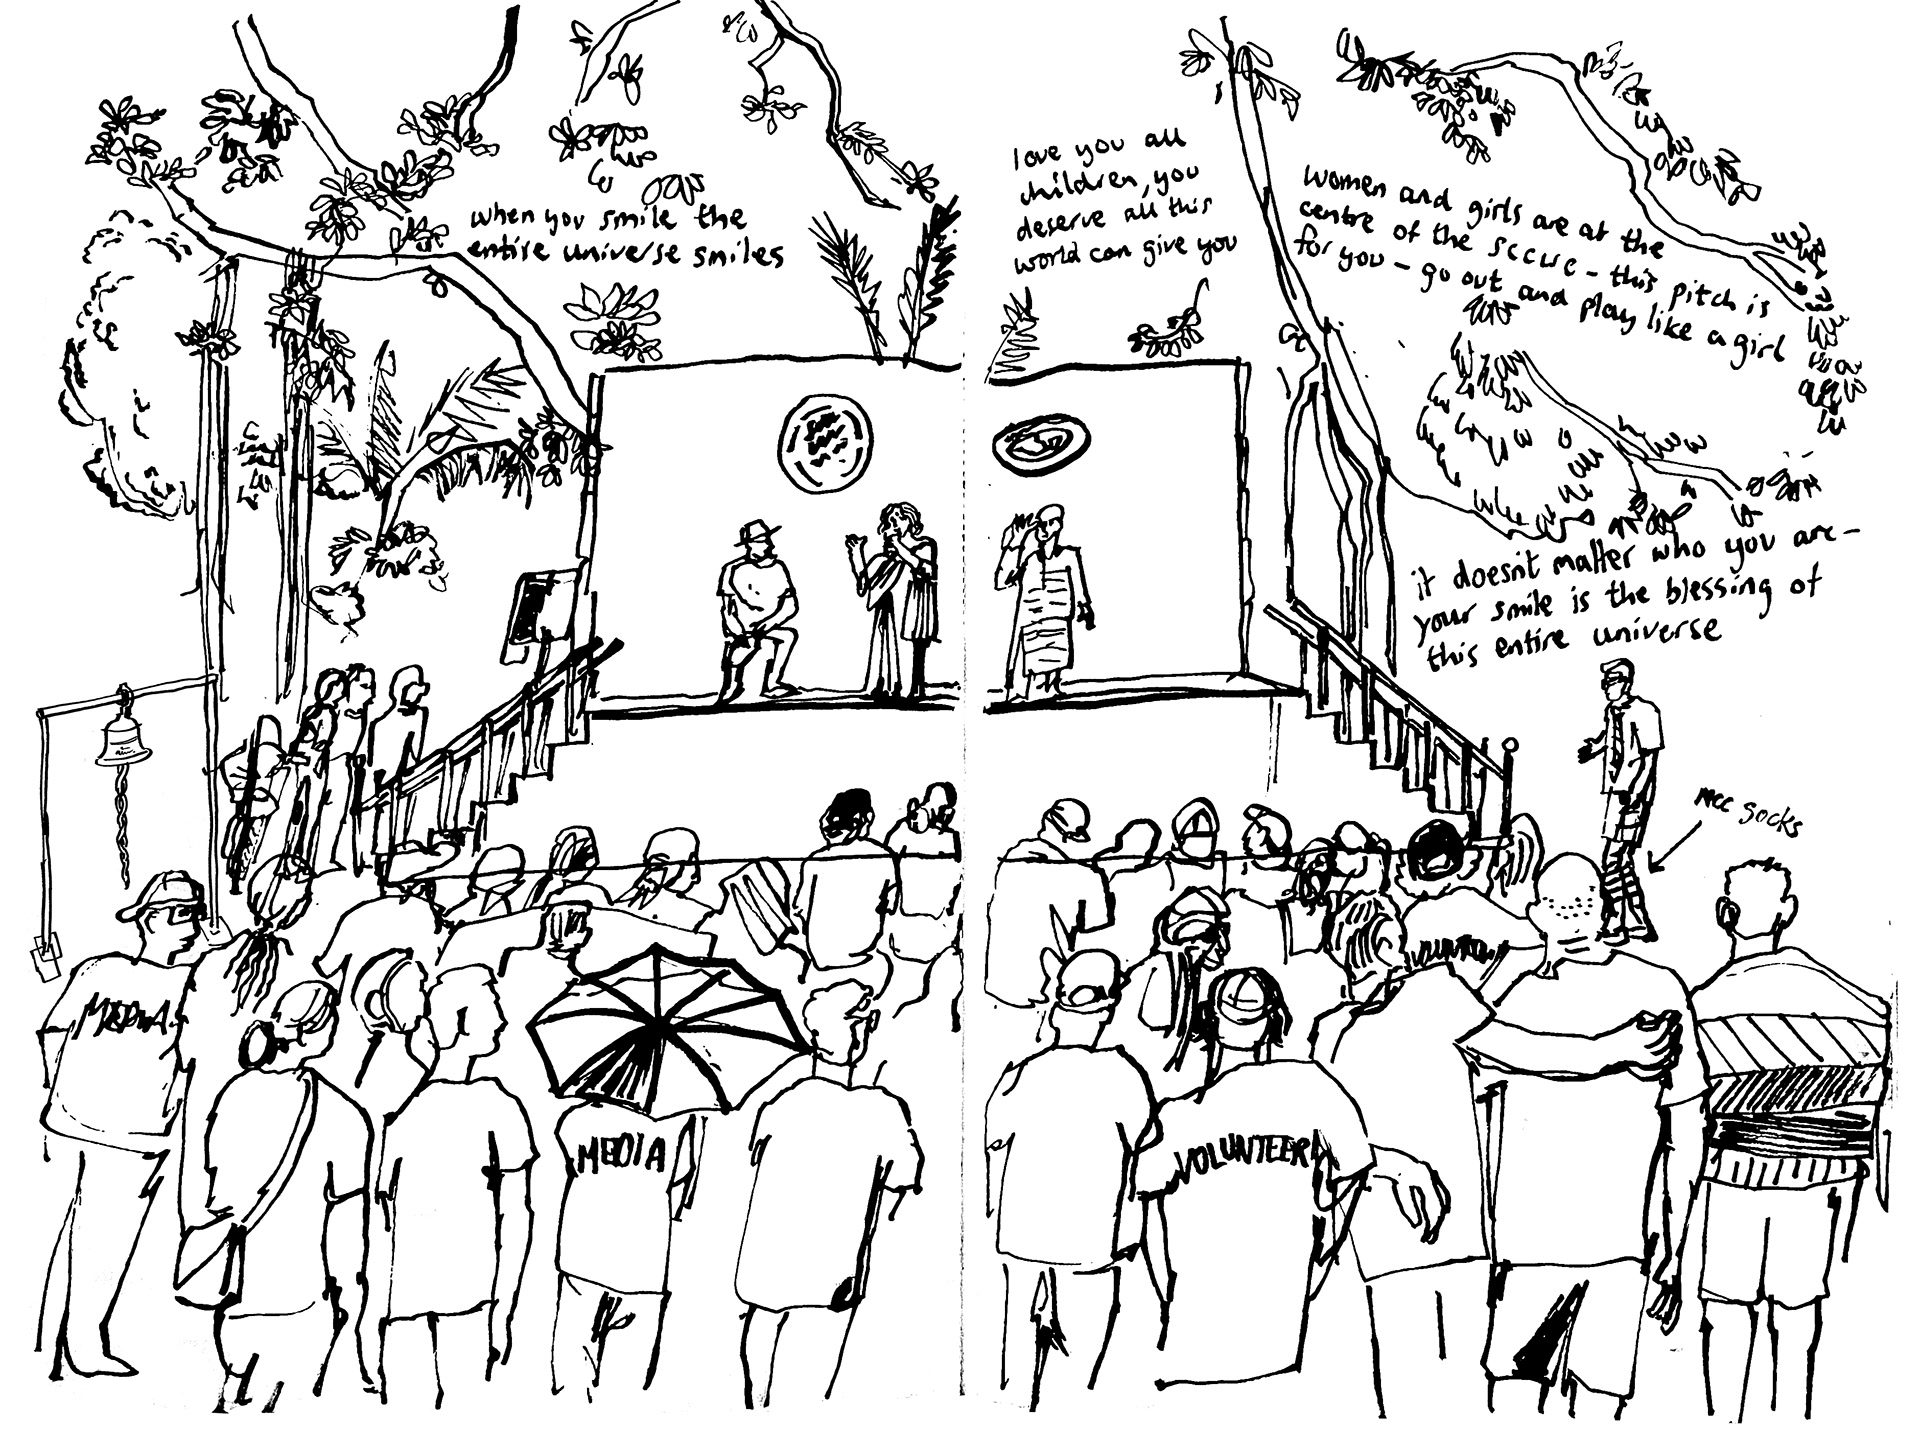 when you smile the
entire universe smiles
love you all
children, you
deserve all this
world can give you
women and girls are at the
centre of the - this pitch is
for you - go out and play like a girl
it doesn't matter who you are -
your smile is the blessing of
this entire universe
MCC socks
VOLUNTEER
MEDIA
MEDIA
VOLUNTEER